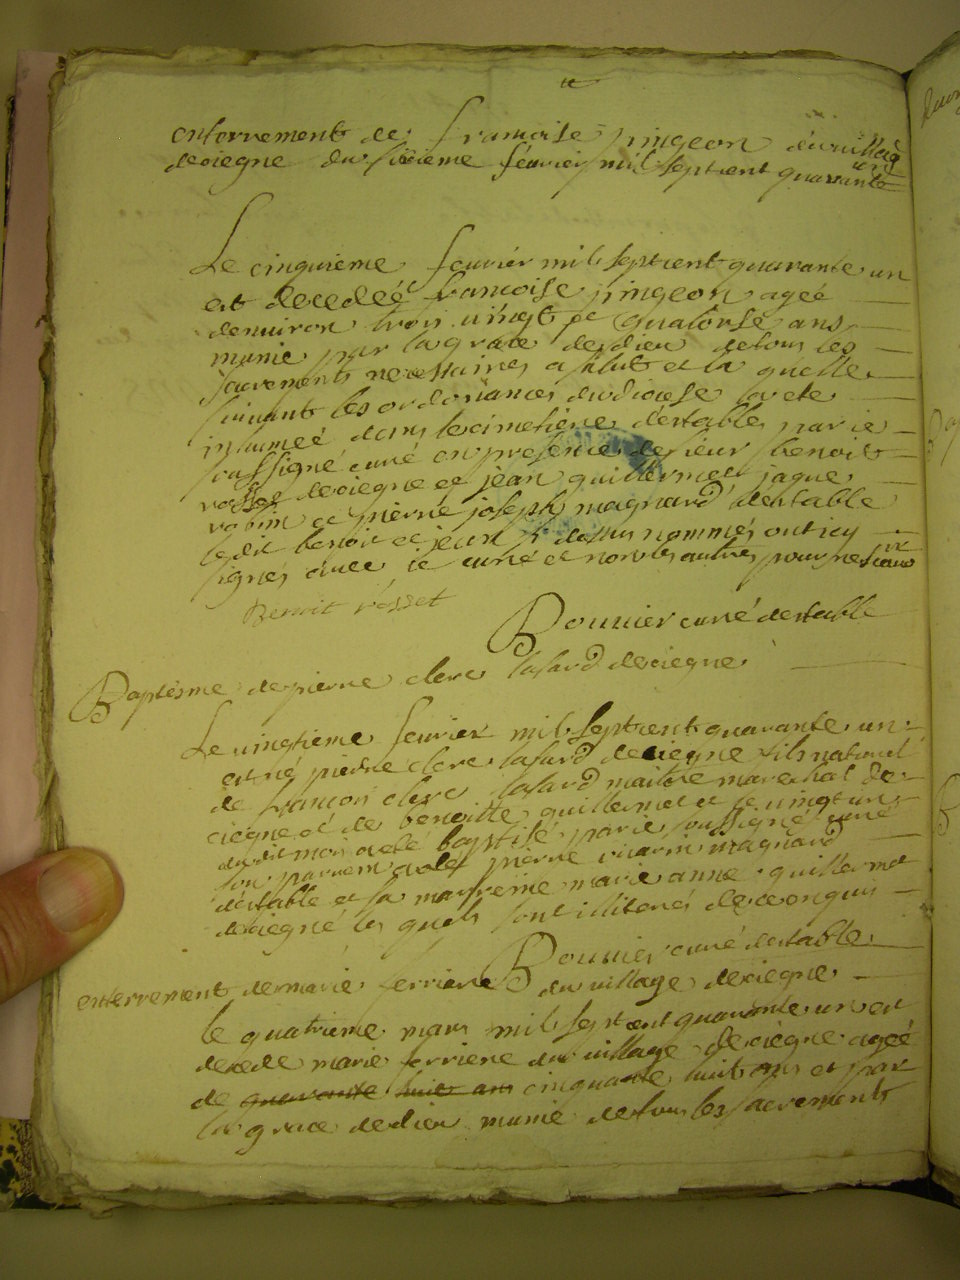 enterrement de francoise pingeon du village
de ciegne du sixieme fevrier mil sept cent quarante
un
Le cinquieme fevrier mil sept cent quarante un
est decedeé francoise pingeon ageé
denviron trois vingt et quatorse ans
munie par la grace de dieu de tous les
sacrements necessaires a salut et la quelle
suivant les ordonances du diocese a eté
inhumeé dans le cimetiere destable par je
soussigné curé en presence de sieur benoit
rosset de ciegne et jean guillermet jaque
robin et pierre joseph magnard destable
ledit benoit et jean dessus nommés ont icy
signés avec je curé et non les autres pour ne scavoir
Benoit rosset
Bouvier curé destable
Baptesme de pierre clerc lafard de ciegne
Le vingtieme fevrier mil sept cent quarante un
est né pierre clerc lafard de ciegne fils naturel
de francois clerc lafard maitre marechal de
ciegne et de benoitte guillermet et le vingt un
dudit mois a eté baptisé par je soussigné curé
son parrein a eté pierre magnard
destable et sa marreine marie anne guillermet
de ciegne les quels sont illiterés de ce enquis
Bouvier curé destable
enterrement de marie ferriere du village de ciegne
le quatrieme mars mil sept cent quarante un est
decede marie ferriere du village de ciegne ageé
de quarante huit ans cinquante huit ans et par
la grace de dieu munie de tous les sacrements